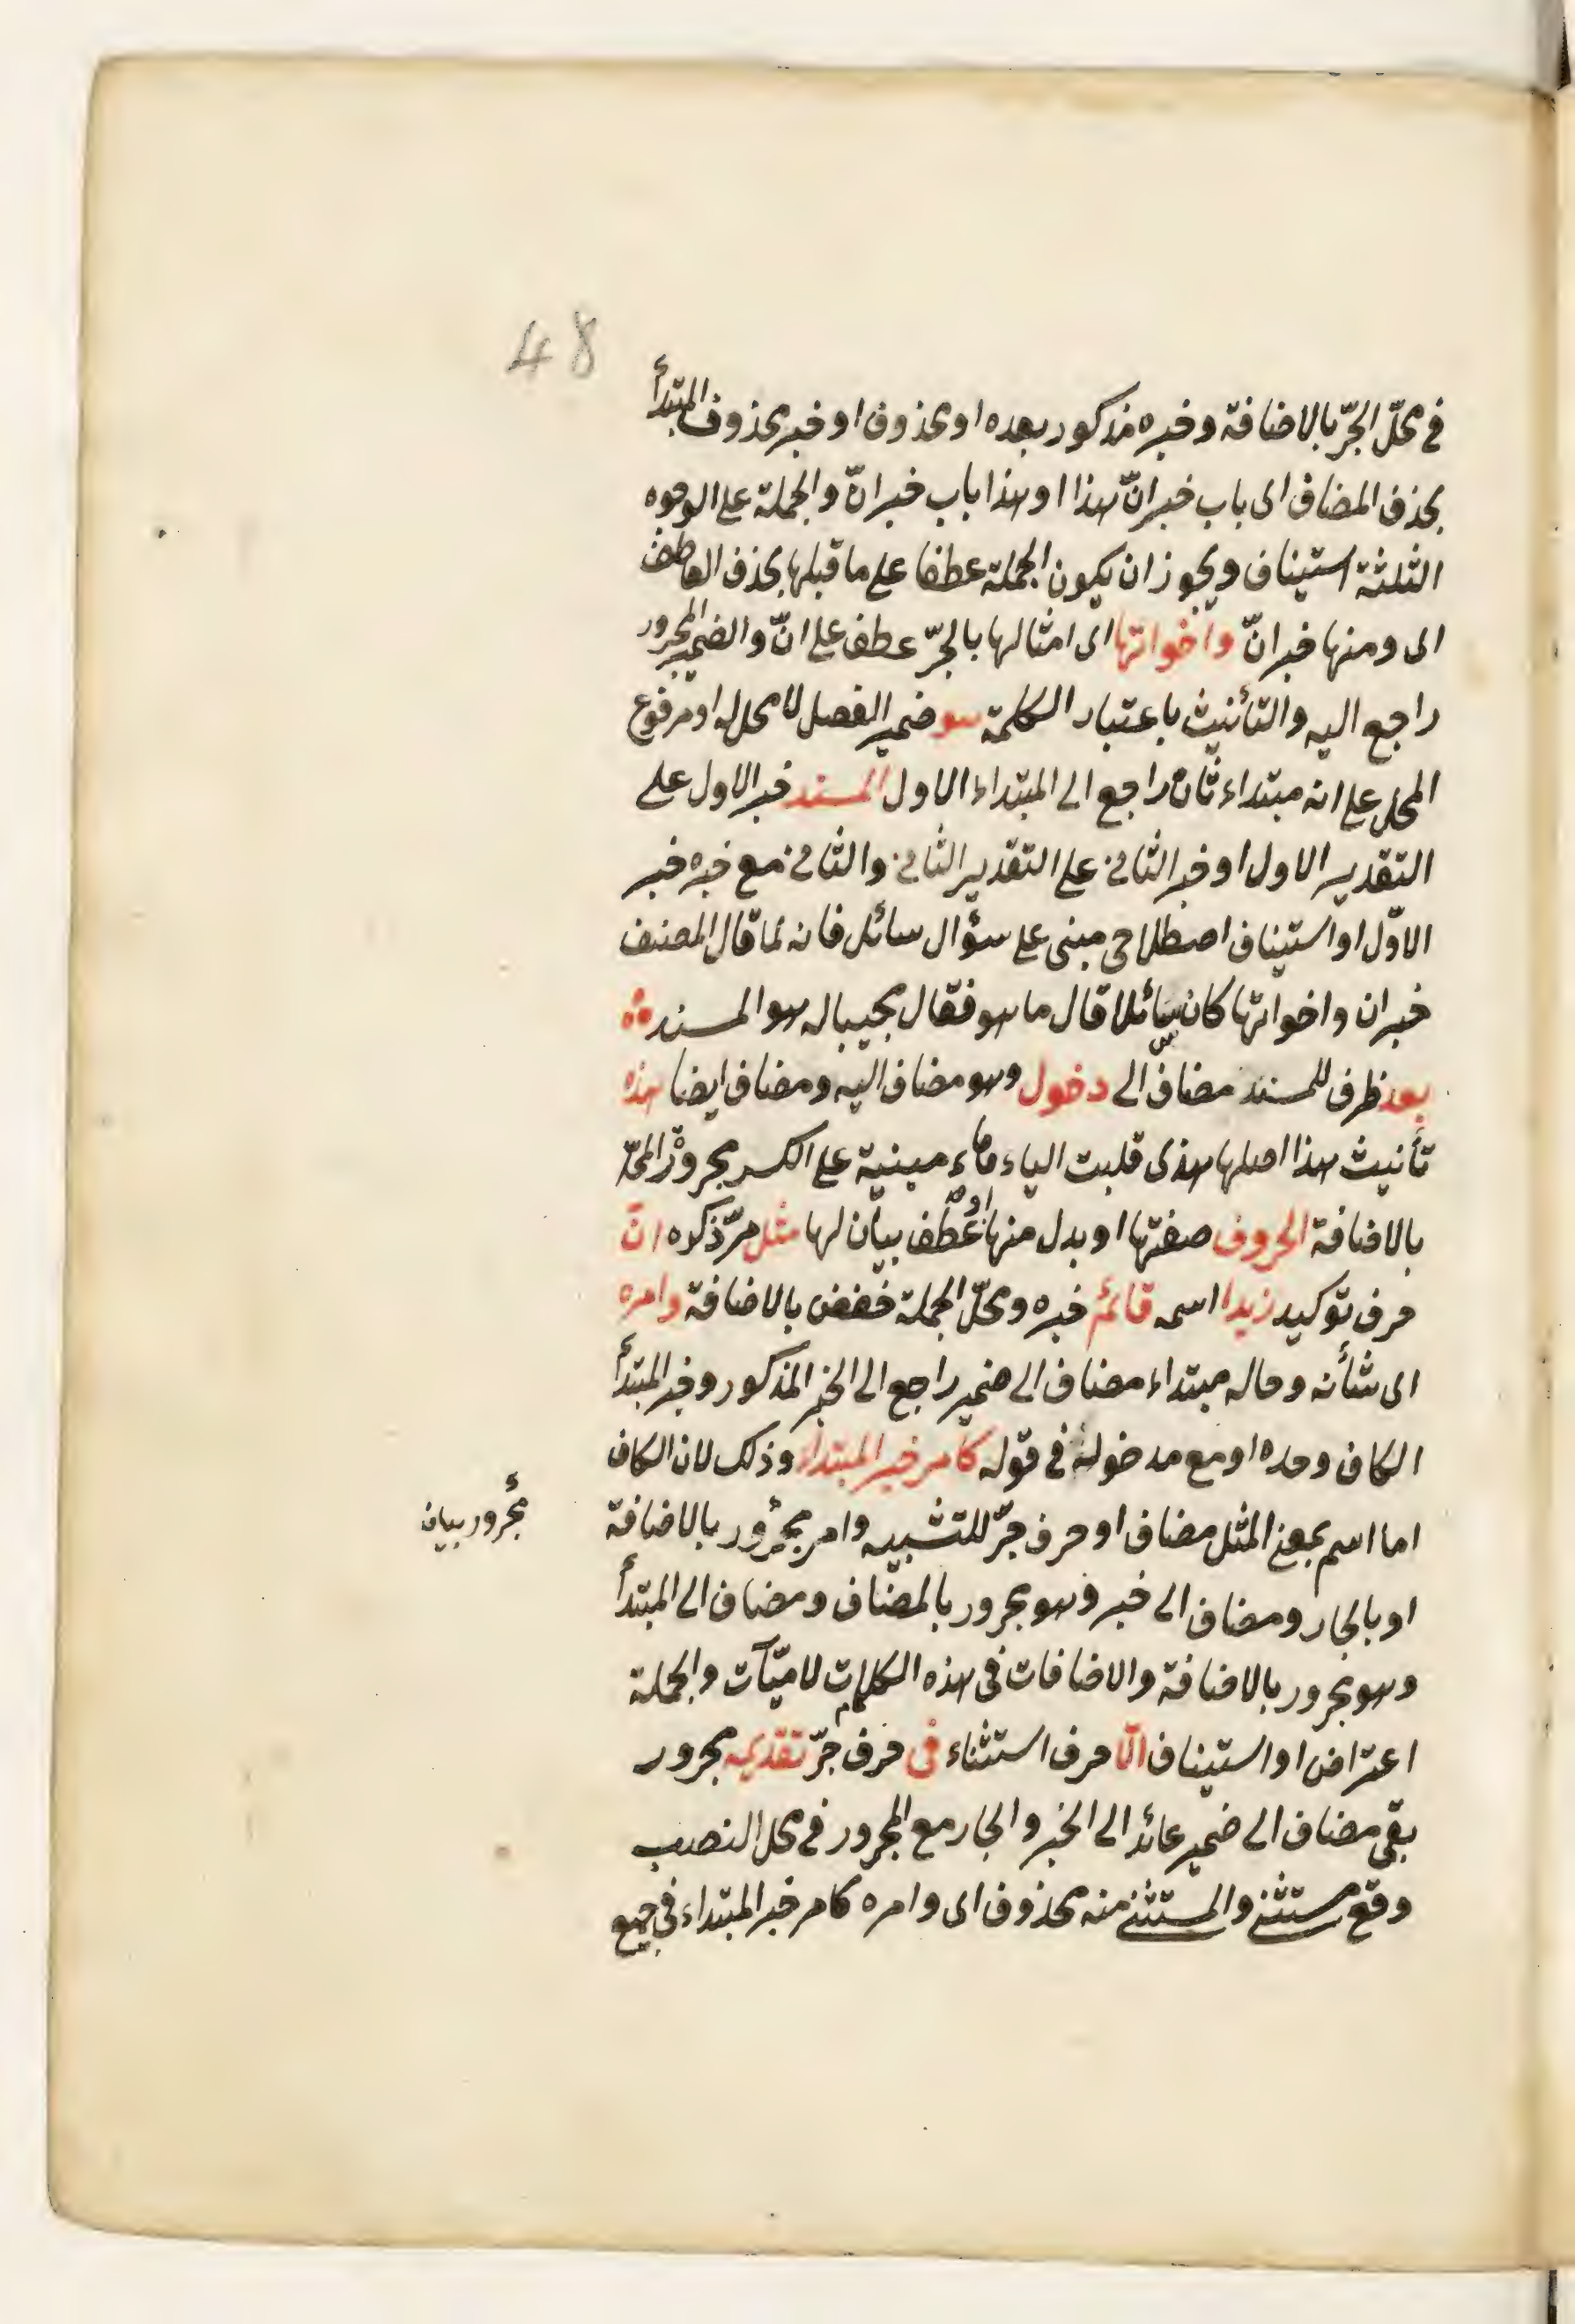 48
فى محلّ الجرّ بالاضافة وخبره مذكور بعده او محذوف او خبر محذوف المبتدأ
بحذف المضاف اى باب خبر انّ هذا او هذا باب خبر انّ والجملة على الوجوه
الثلثة استيناف ويجوز ان يكون الجملة عطفا على ما قبلها بحذف العاطف
اى ومنها خبر انّ واخواتها اى امثالها بالجرّ عطف على انّ والضمير المجرور
راجع اليه والتأنيث باعتبار الكلمة هو ضمير الفصل لا محل له او مرفوع
المحل على انه مبتداء ثان راجع الى المبتداء الاول المسند خبر الاول على
التقدير الاول او خبر الثانى على التقدير الثانى والثانى مع خبره خبر
الاوّل او استيناف اصطلاحى مبنى على سؤال سائل فانه لما قال المصنف
خبر ان واخواتها كان سائلا قال ما هو فقال مجيبا له هو المسند
بعد ظرف للمسند مضاف الى دخول وهو مضاف اليه ومضاف ايضا هذه
تأنيث هذا اصلها هذى قلبت الياء هاء مبنية على الكسر مجرور المحلّ
بالاضافة الحروف صفتها او بدل منها او عطف بيان لها مثل مرّ ذكره انّ
حرف توكيد زيدا اسمه قائم خبره ومحلّ الجملة خفض بالاضافة وامره
اى شأنه وحاله مبتداء مضاف الى ضمير راجع الى الخبر المذكور وخبر المبتدأ
الكاف وحده او مع مدخوله فى قوله كامر خبر المبتداء وذلك لان الكاف
اما اسم بمعنى المثل مضاف او حرف جرّ للتشبيه وامر مجرور بالاضافة
مجرور بيان
او بالجار ومضاف الى خبر وهو مجرور بالمضاف ومضاف الى المبتدأ
وهو مجرور بالاضافة والاضافات فى هذه الكلمات لاميّات والجملة
اعتراض او استيناف الّا حرف استثناء فى حرف جرّ تقديمه مجرور
بفى مضاف الى ضمير عائد الى الخبر والجار مع المجرور فى محل النصب
وقع مستثنى والمستثنى منه محذوف اى وامره كامر خبر المبتداء فى جميع